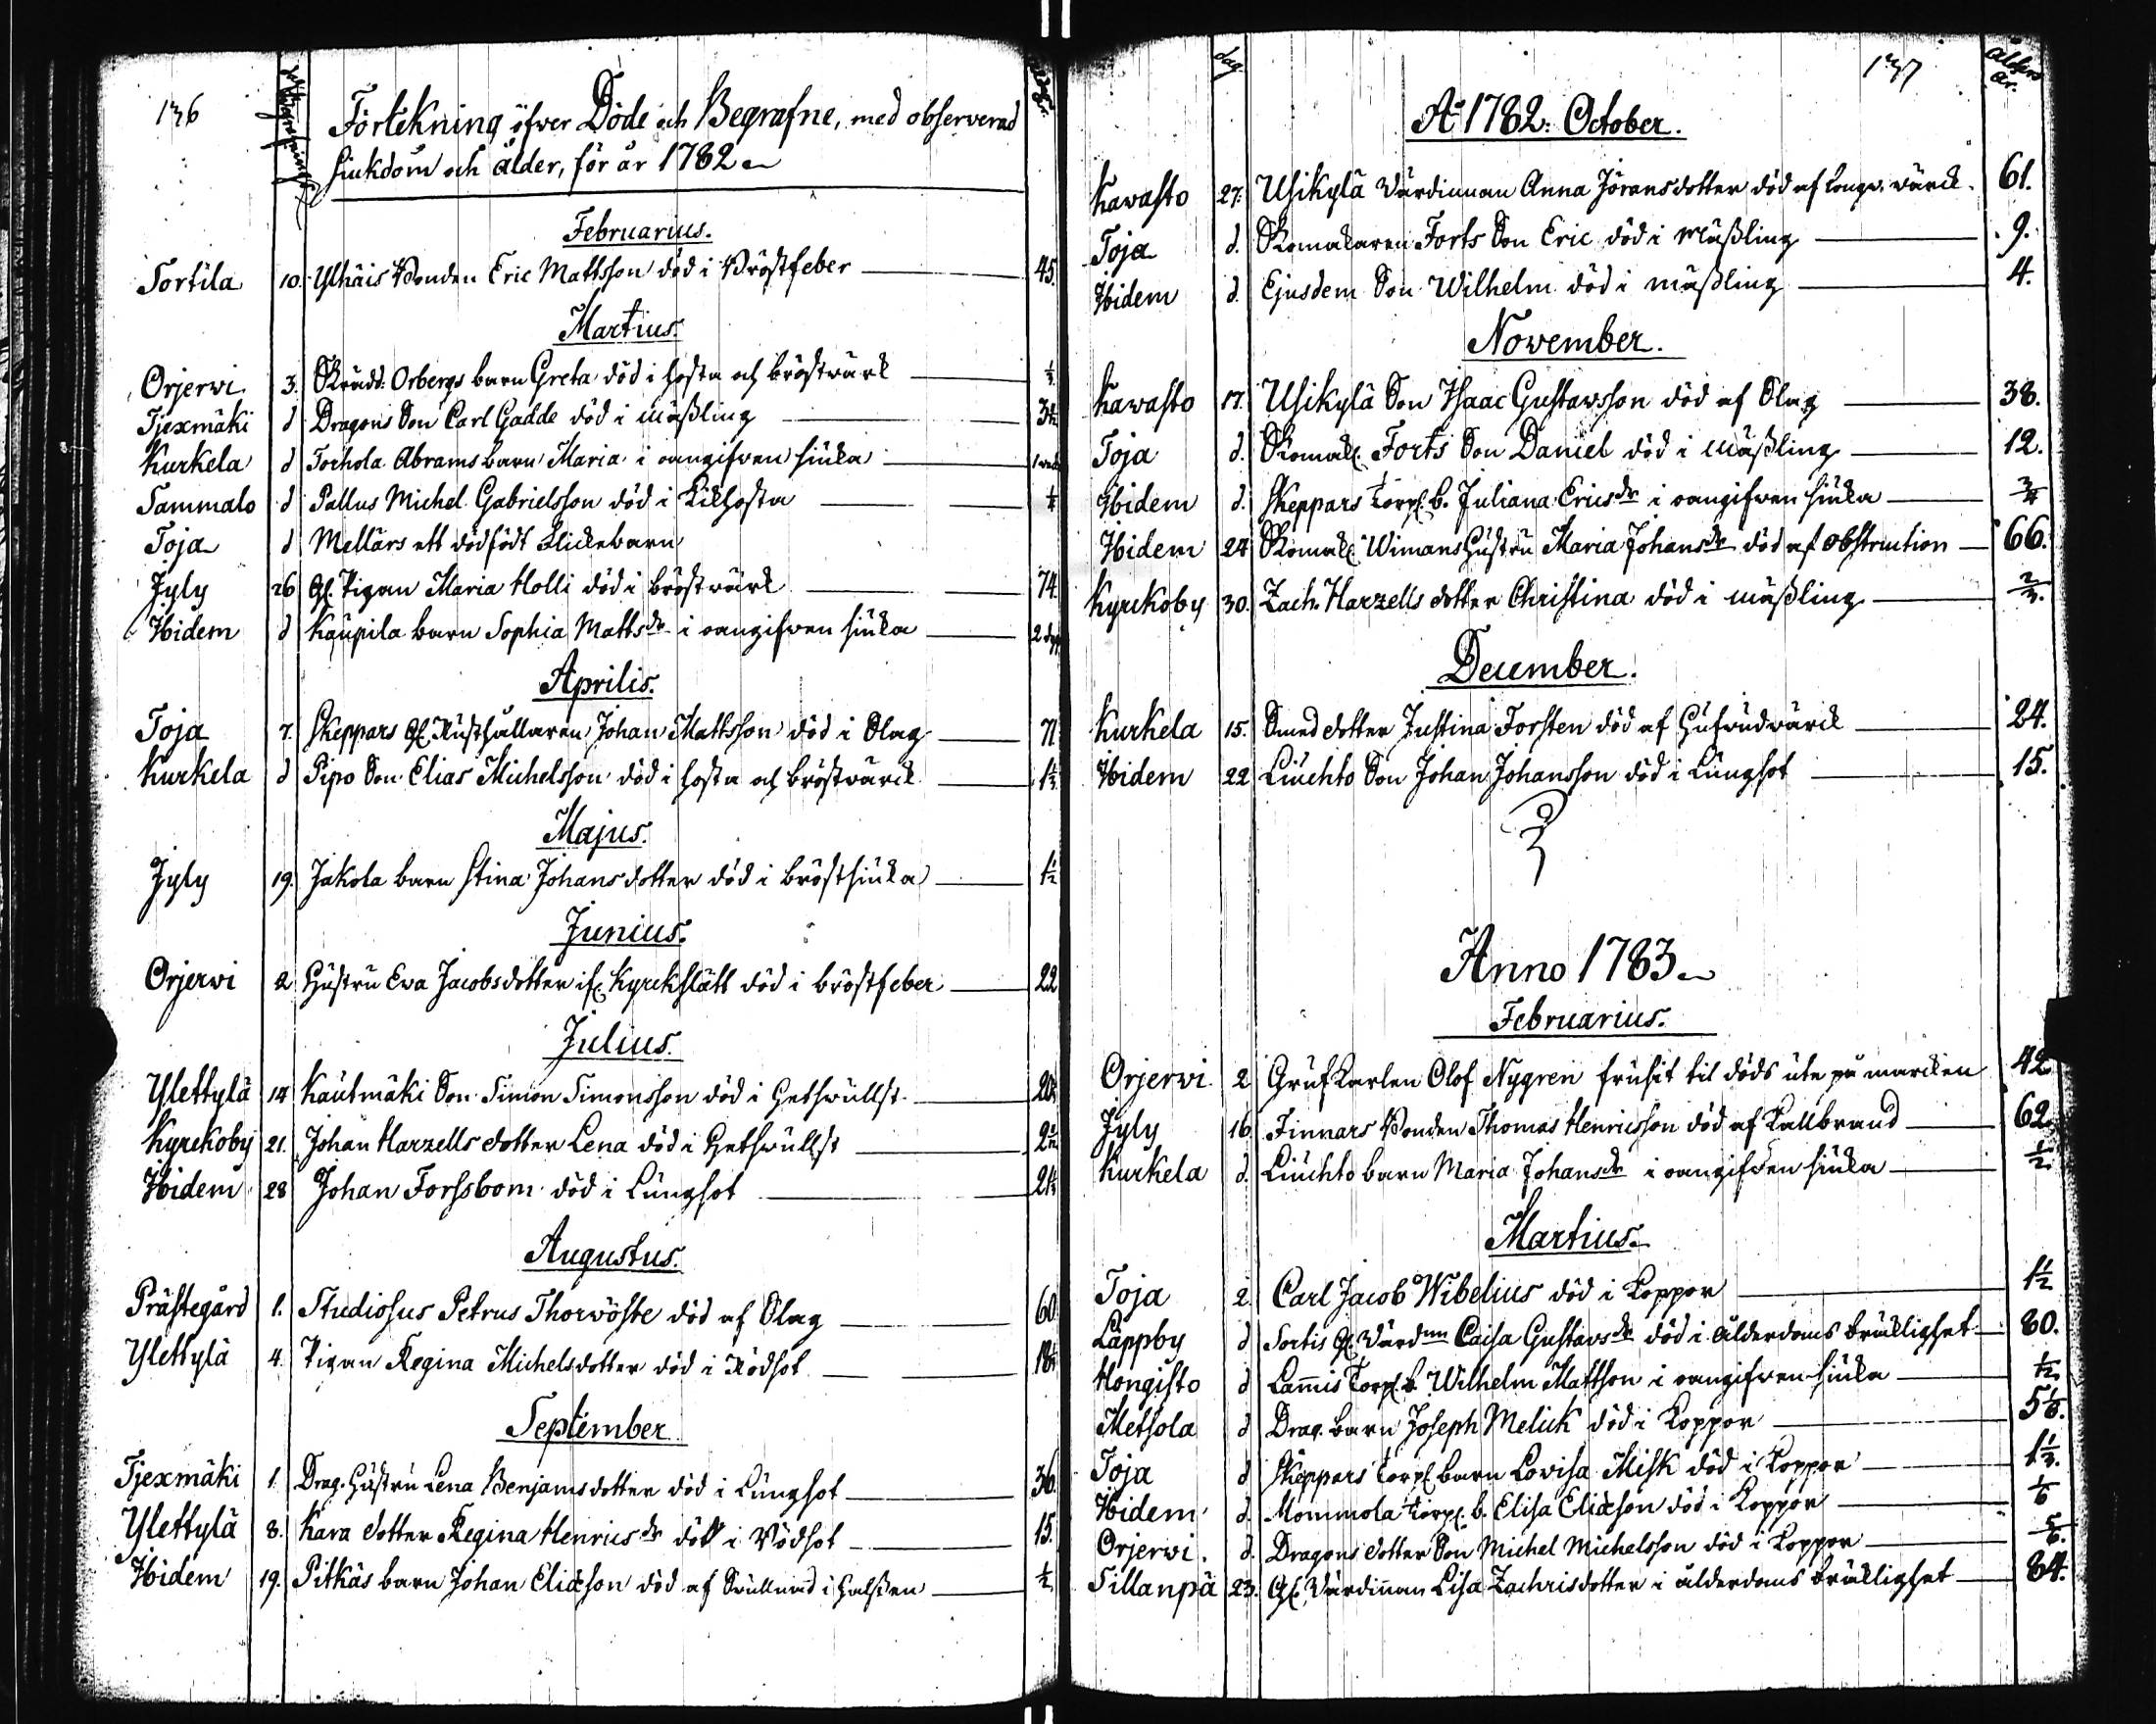 136
Förtekning öfver Döde och Begrafne, med observerad
siukdom och ålder, för år 1782
Februarius.
Sortila 10. Ylhäis Bonden Eric Mattsson död i Bröstfeber 45.
Martius.
Orjerwi 3. Skrädd. Orbergs barn Greta död i hosta och bröstwärk
Tjexmäki d Dragons Son Carl Gadde död i Mäßling 3½
Kurkela d Torhola Abrams barn Maria i oangifwen siuka
Sammalo d Pallus Michel Gabrielsson död i Kikhosta
Toja d Mellärs ett dödfödt Flickebarn
Jyly 26 Gl. Pigan Maria Holli död i bröstwärk 74.
Ibidem d Kaupila barn Sophia Mattsdr i oangifwen siuka
Aprilis.
Toja 7. Skeppars Gl. Rusthållaren Johan Mattsson död i Olag 71
Kurkela d Pipo Son Elias Michelsson död i hosta och bröstwärck 1½
Majus.
Jyly 19. Jakola barn Stina Johansdotter död i bröstsiuka 1½
Junius.
Orjerwi 2 Hustru Ewa Jacobsdotter if. Kyrckslätt död i bröstfeber 22
Julius.
Ylettylä 14 Kautmäki Son Simon Simonsson död i Hetswullst
Kyrckoby 21. Johan Harzells dotter Lena död i Hetswullst
Ibidem 28 Johan Forssbom död i Lungsot
Augustus.
Prästegård 1. Studiosus Petrus Thorwöste död af Olag 60
Ylettylä 4. Pigan Regina Michelsdotter död i Rödsot
September
Tjexmäki 1 Drag. Hustru Lena Benjamsdotter död i Lungsot 36.
Ylettylä 8. Kara dotter Regina Henricsdr död i Rödsot 15.
Ibidem 19. Pitkäs barn Johan Eliæson död af Swullnad i Halsen ½
dag 137 ålders år.
Aº 1782. October.
Kawasto 27. Usikylä Värdinnan Anna Jöransdotter död af wärck. 61.
Toja d. Skomakaren Forts Son Eric död i Mäßling 9.
Ibidem d. Ejusdem Son Wilhelm död i mäßling 4.
November.
Kawasto 17. Usikylä Son Isaac Gustavsson död af Olag 38.
Toja d. Skomak. Forts Son Daniel död i Mäßling 12.
Ibidem d. Skeppars Torp. b. Juliana Ericsdr i oangifwen siuka ¾
Ibidem 24 Skomak. Wimans Hustru Maria Johansdr död af Obstruction 66.
Kyrckoby 30. Zach. Harzells dotter Christina död i mäßling ⅔.
December.
Kurkela 15. Smed dotter Justina Forsten död af Hufwudwärck 24.
Ibidem 22 Liuchto Son Johan Johansson död i Lungsot 15.
Anno 1783
Februarius.
Orjerwi 2 Grufkarlen Olof Nygren frusit til döds ute på marcken 42
Jyly 16. Finnars Bonden Thomas Henricsson död af Kallbrand 62
Kurkela d. Liuchto barn Maria Johansdr i oangifwen siuka ½
Martius.
Toja 2. Carl Jacob Wibelius död i Koppor 1½
Lappby d Sortis Gl. Värdnn Caisa Gustavsdr död i ålderdoms bräcklighet 80.
Hongisto d Lam̄is Torp. b. Wilhelm Mattson i oangifwen siuka
Metsola d Drag. barn Joseph Melick död i Koppor
Toja d Skeppars Torp barn Lovisa Misk död i Koppor
Ibidem d. Mommola Torp. b. Elisa Eliæson död i Koppor
Orjerwi d. Dragons dotter Son Michel Michelsson död i Koppor
Sillanpä 23. Gl. Värdin̄an Lisa Zachrisdotter i ålderdoms bräcklighet 84.